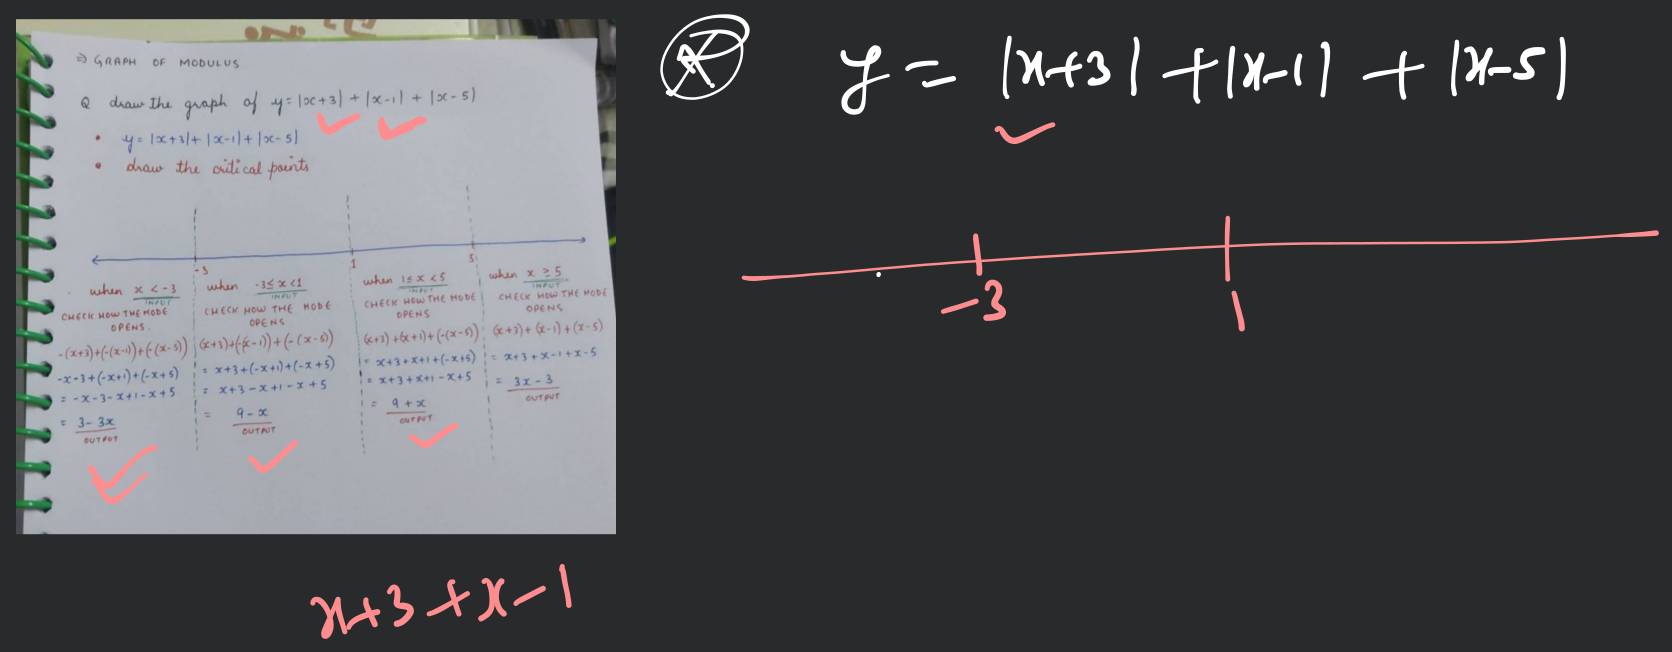 ⇒ GRAPH OF MODULUS
Q draw the graph of y = |x+3| + |x-1| + |x-5|
• y = |x+3| + |x-1| + |x-5|
• draw the critical points
-3 1 5
when x < -3
INPUT
CHECK HOW THE MODE
OPENS.
-(x+3)+(-(x-1))+(-(x-5))
-x-3+(-x+1)+(-x+5)
= -x-3-x+1-x+5
= 3-3x
OUTPUT
when -3≤x<1
INPUT
CHECK HOW THE MODE
OPENS
(x+3)+(-(x-1))+(-(x-5))
= x+3+(-x+1)+(-x+5)
= x+3-x+1-x+5
= 9-x
OUTPUT
when 1≤x<5
INPUT
CHECK HOW THE MODE
OPENS
(x+3)+(x+1)+(-(x-5))
= x+3+x+1+(-x+5)
= x+3+x+1-x+5
= 9+x
OUTPUT
when x ≥ 5
INPUT
CHECK HOW THE MODE
OPENS
(x+3)+(x-1)+(x-5)
= x+3+x-1+x-5
= 3x-3
OUTPUT
x+3+x-1
y = |x+3| + |x-1| + |x-5|
-3 1